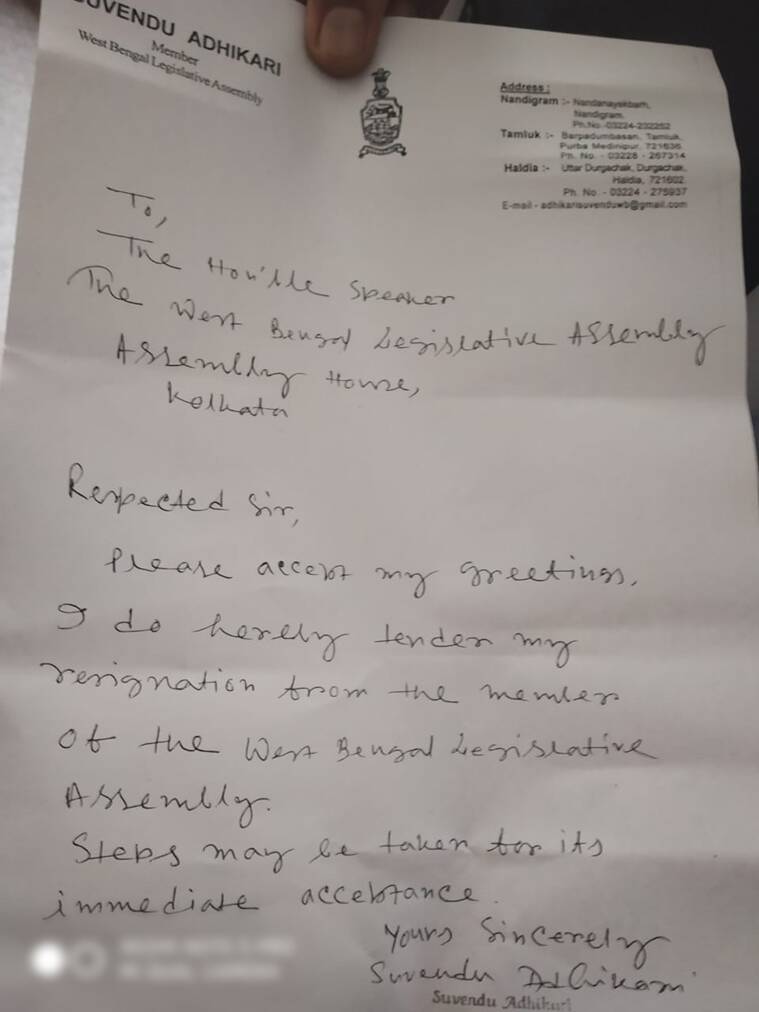 SUVENDU ADHIKARI
Member
West Bengal Legislative Assembly
Address :
Nandigram :- Nandanayekbarh,
Nandigram.
Ph.No.-03224-232252
Tamluk :- Barpadumbasan, Tamluk,
Purba Medinipur, 721636
Ph. No. - 03228 - 267314
Haldia :- Uttar Durgachak, Durgachak,
Haldia, 721602
Ph. No. - 03224 - 275937
E-mail - adhikarisuvenduwb@gmail.com
To,
The Hon'ble Speaker
The West Bengal Legislative Assembly
Assembly House,
Kolkata
Respected Sir,
Please accept my greetings.
I do hereby tender my
resignation from the member
of the West Bengal Legislative
Assembly.
Steps may be taken for its
immediate acceptance.
Yours Sincerely
Suvendu Adhikari
Suvendu Adhikari